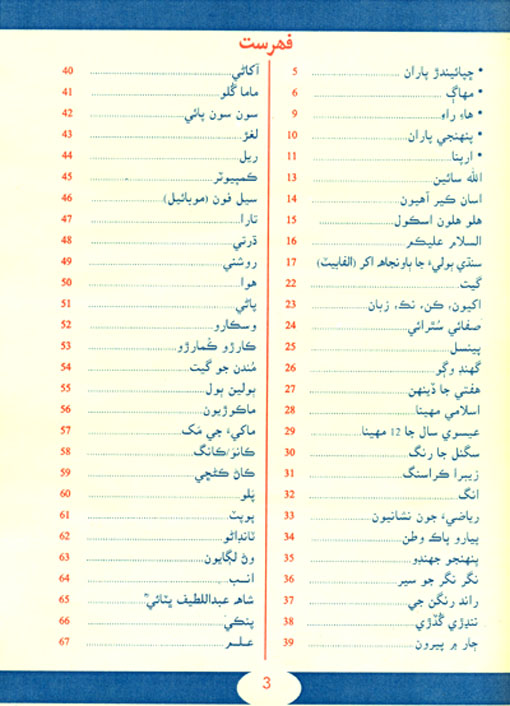 فهرست
• ڇپائيندڙ پاران 5
• مهاڳ 6
• هاءِ راءِ 9
• پنهنجي پاران 10
• ارپنا 11
الله سائين 13
اسان ڪير آهيون 14
هلو هلون اسڪول 15
السلام عليڪم 16
سنڌي ٻوليءَ جا ٻاونجاهه اکر (الفابيٽ) 17
گيت 22
اکيون، ڪن، نڪ، زبان 23
صفائي سُٿرائي 24
پينسل 25
گهنڊ وڳو 26
هفتي جا ڏينهن 27
اسلامي مهينا 28
عيسوي سال جا 12 مهينا 29
سگنل جا رنگ 30
زيبرا ڪراسنگ 31
انگ 32
رياضيءَ جون نشانيون 33
پيارو پاڪ وطن 34
پنهنجو جهنڊو 35
نگر نگر جو سير 36
راند رنگن جي 37
ننڍڙي گُڏڙي 38
ڄار ۾ ٻيرون 39
آکاڻي 40
ماما گُلو 41
سون سون پائي 42
لغڙ 43
ريل 44
ڪمپيوٽر 45
سيل فون (موبائيل) 46
تارا 47
ڌرتي 48
روشني 49
هوا 50
پاڻي 51
وسڪارو 52
ڪارڙو ڪُمارڙو 53
مُندن جو گيت 54
ٻولين ٻول 55
ماڪوڙيون 56
ماکيءَ جي مَک 57
ڪانوَ/ڪانگ 58
ڪاڻ ڪڻڇي 59
پَلو 60
پوپٽ 61
ٽانڊاڻو 62
وڻ لڳايون 63
انب 64
شاهه عبداللطيف ڀٽائيؒ 65
پنکي 66
علم 67
3